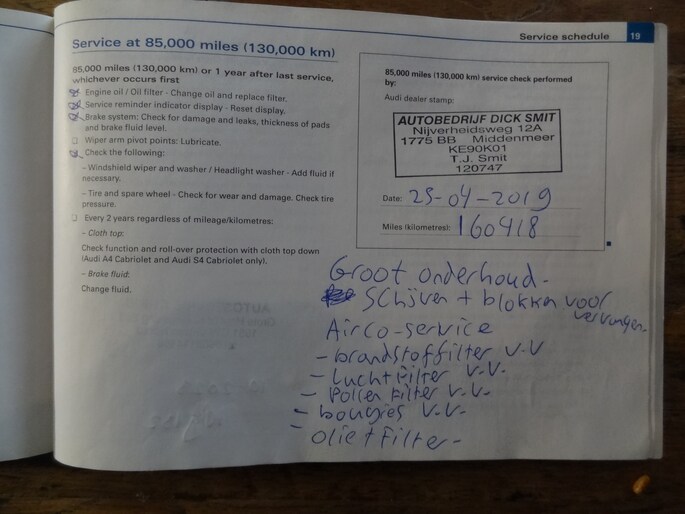 Service schedule 19
Service at 85,000 miles (130,000 km)
85,000 miles (130,000 km) or 1 year after last service,
whichever occurs first
Engine oil / Oil filter - Change oil and replace filter.
Service reminder indicator display - Reset display.
Brake system: Check for damage and leaks, thickness of pads
and brake fluid level.
Wiper arm pivot points: Lubricate.
Check the following:
– Windshield wiper and washer / Headlight washer - Add fluid if
necessary.
– Tire and spare wheel - Check for wear and damage. Check tire
pressure.
Every 2 years regardless of mileage/kilometres:
– Cloth top:
Check function and roll-over protection with cloth top down
(Audi A4 Cabriolet and Audi S4 Cabriolet only).
– Brake fluid:
Change fluid.
85,000 miles (130,000 km) service check performed
by:
Audi dealer stamp:
AUTOBEDRIJF DICK SMIT
Nijverheidsweg 12A
1775 BB Middenmeer
KE90K01
T.J. Smit
120747
Date: 25-04-2019
Miles (kilometres): 160418
Groot onderhoud-
Schijven + blokken voor
vervangen-
Airco-service
- brandstoffilter V.V
- Luchtfilter V.V.
- Pollen filter V.V.
- bougies V.V.
- olie + filter-